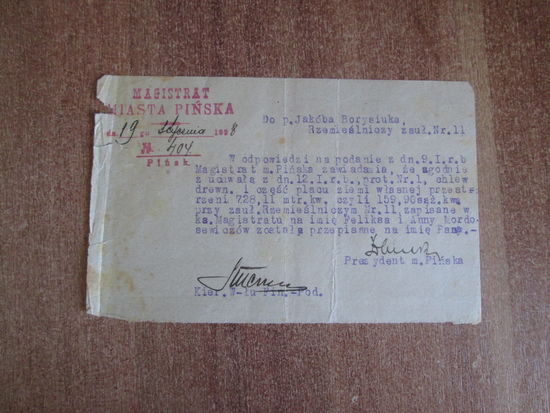 MAGISTRAT
MIASTA PIŃSKA
dn. 19 go stycznia 1928
№ 404
Pińsk
Do p.Jakóba Borysiuka,
Rzemieślniczy zauł.Nr.11
W odpowiedzi na podanie z dn.9.I.r.b
Magistrat m.Pińska zawiadamia, że zgodnie
z uchwałą z dn.12.I.r.b.,prot.Nr.1, chlew
drewn. i część placu ziemi własnej przest-
rzeni 728,11 mtr.kw. czyli 159,96 sąż.kw.
przy zauł.Rzemieślniczym Nr.11,zapisane w
ks.Magistratu na imię Feliksa i Anny Kordo-
sewiczów została przepisane na imię Pana.-
Prezydent m.Pińska
Kier. W-łu Fin.-Pod.